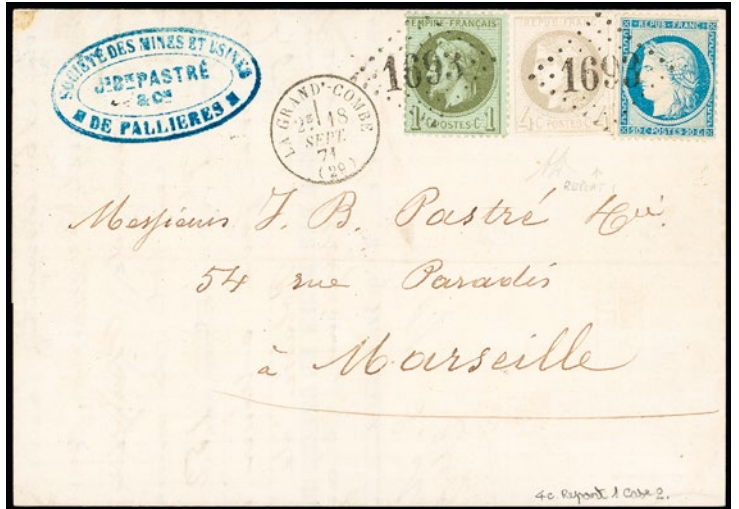 SOCIÉTÉ DES MINES ET USINES
Jh DE PASTRÉ
& Cie
DE PALLIERES
LA GRAND'-COMBE
2E 18
SEPT
71
(29)
EMPIRE FRANÇAIS
1 POSTES C 1
4 C POSTES
REPUB. FRANC.
20 C POSTES 20 C
1693
1693
Messieurs J. B. Pastré
54 rue Paradis
à Marseille
REPORT 1
4c. Report 1 Case 2.